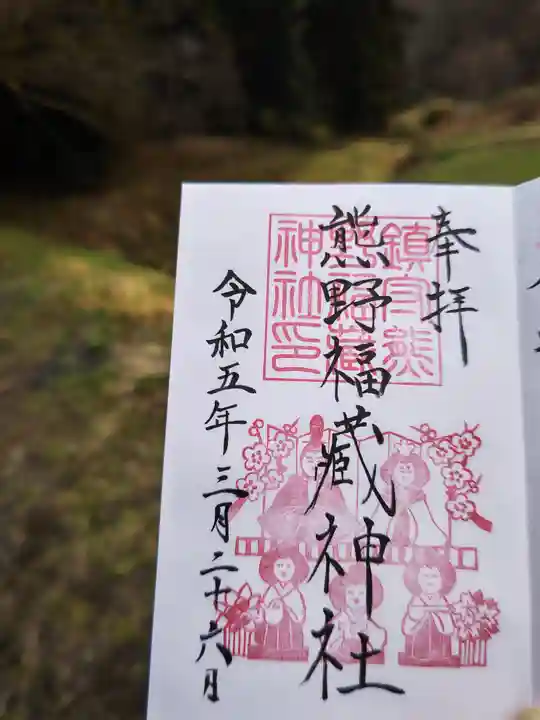 奉拝
熊野福蔵神社
令和五年三月二十六日
鎮守熊
野福蔵
神社印